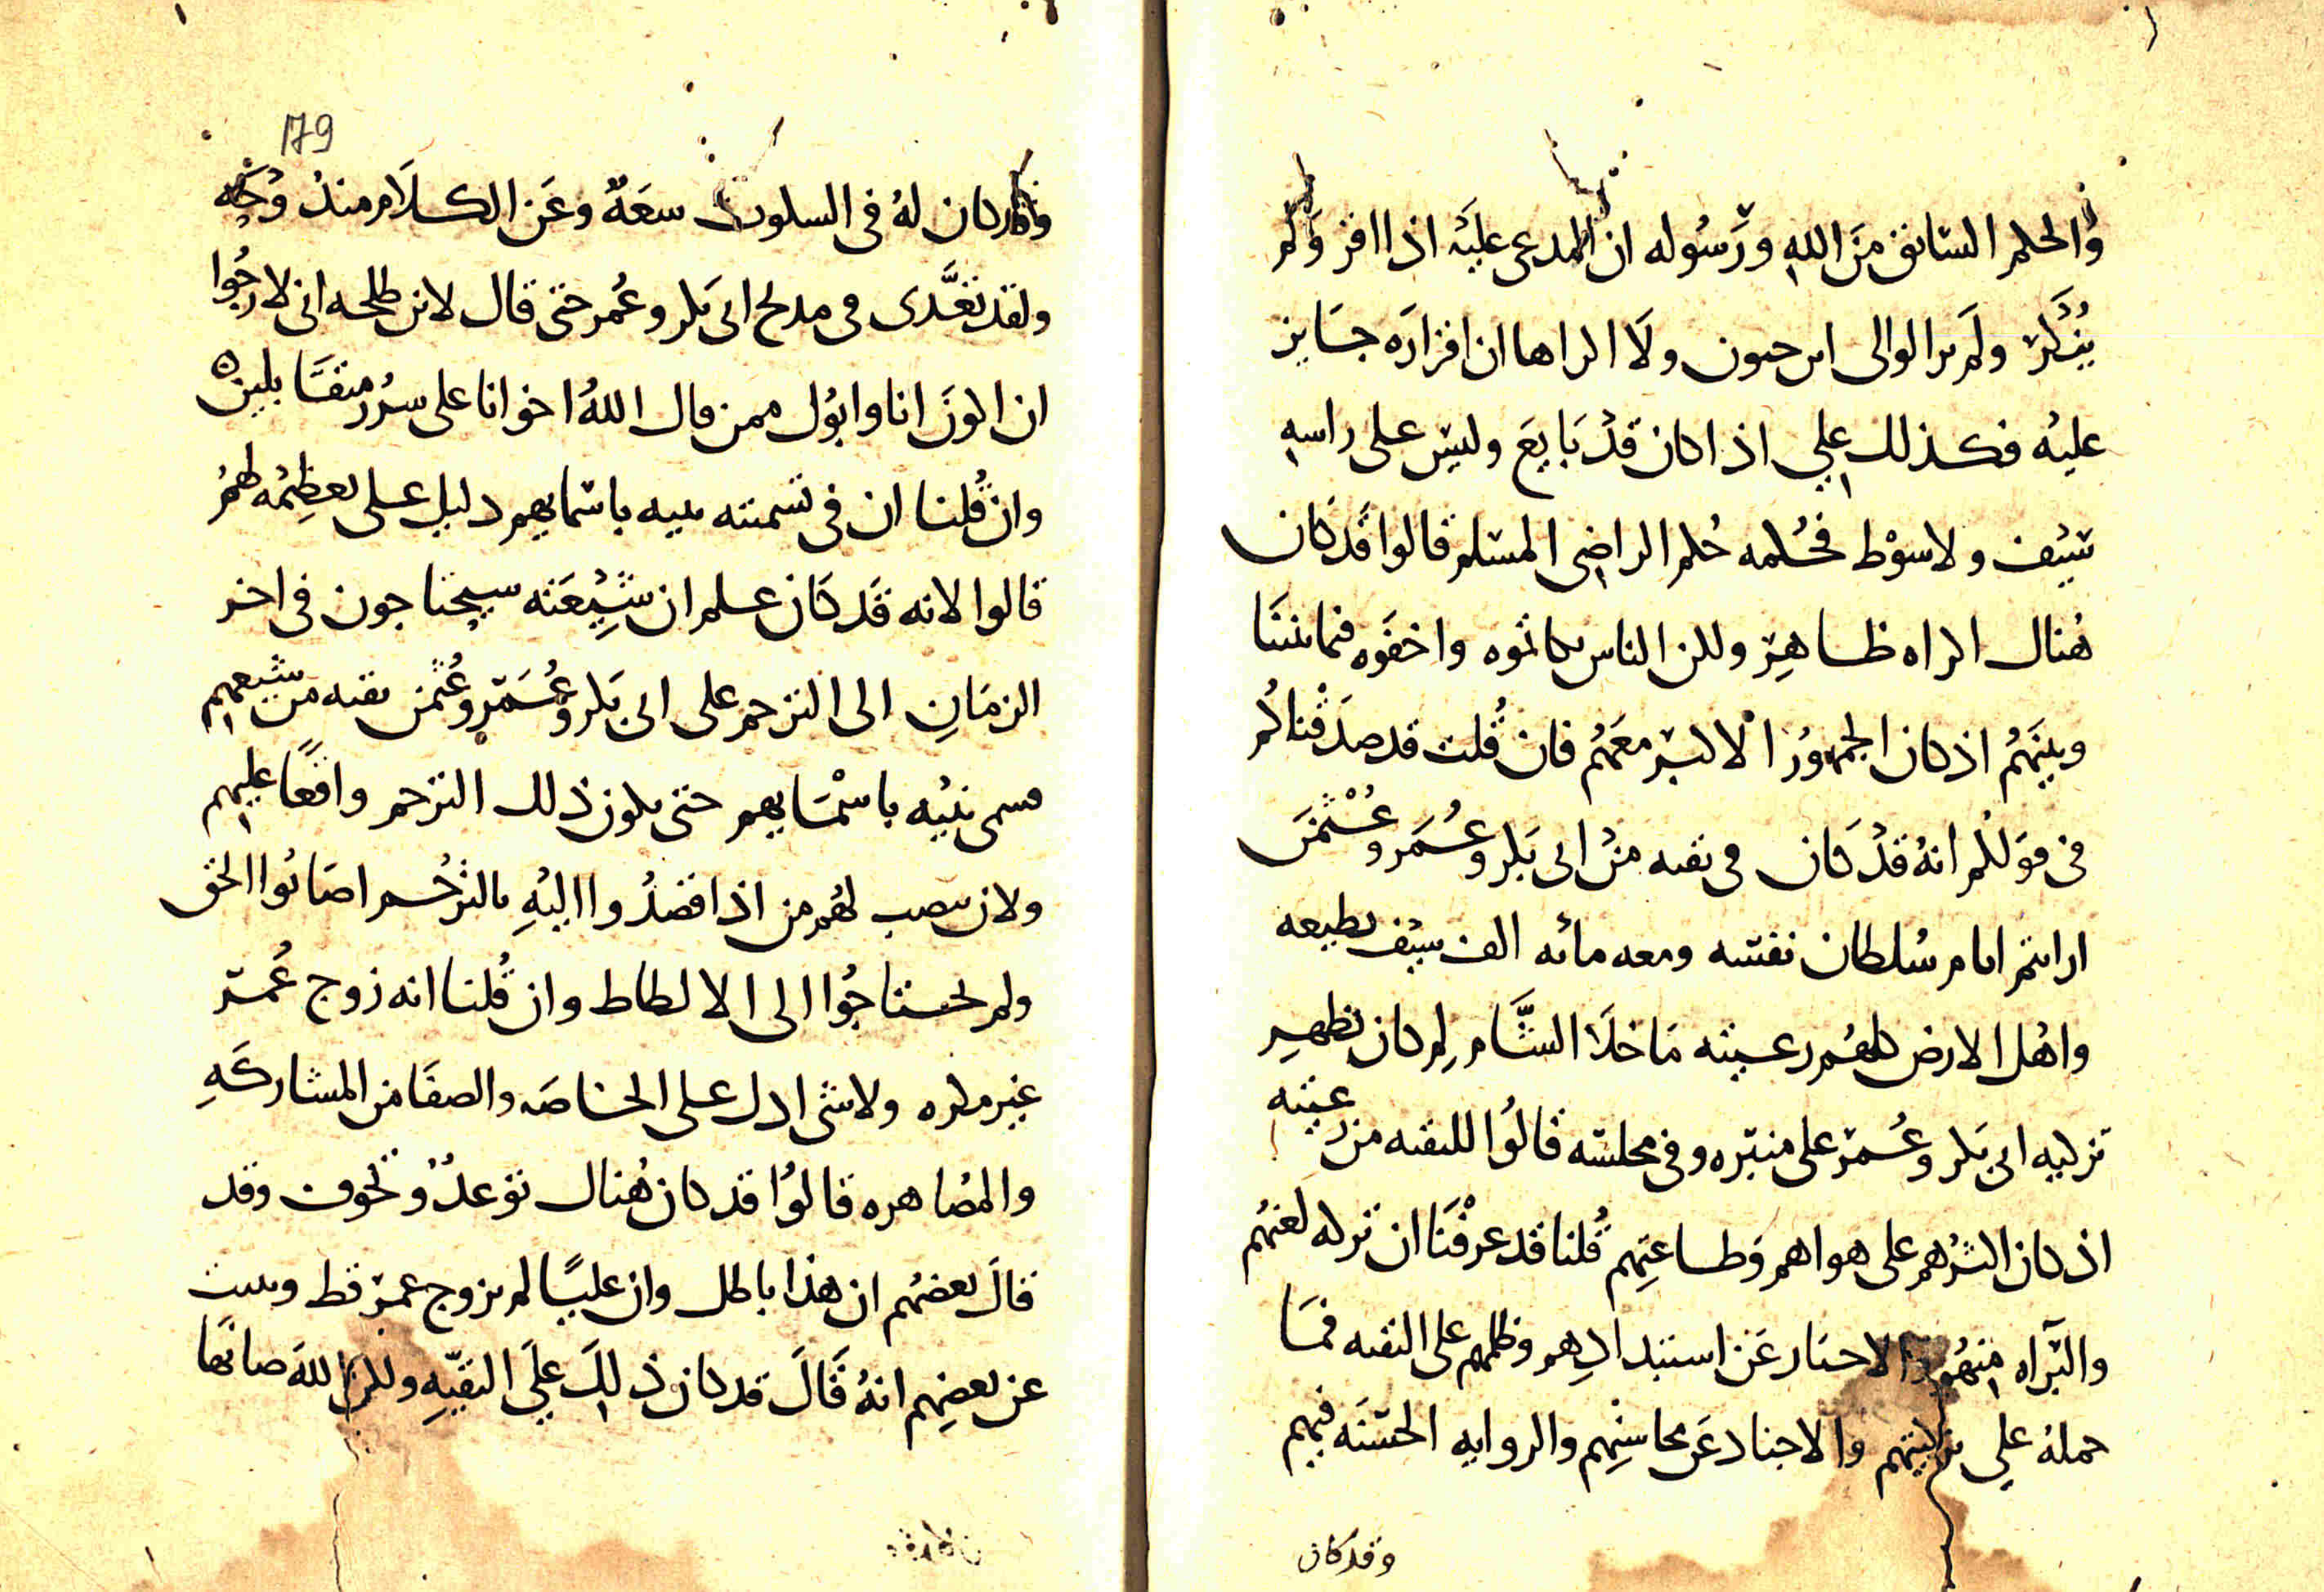 والحكم السابق من الله ورسوله ان المدعى عليه اذا اقر ولم
ينكر ولم ير الوالى اثر جنون ولا اكراها ان اقراره جايز
عليه فكذلك علي اذا كان قد بايع وليس على راسه
سيف ولا سوط فحكمه حكم الراضى المسلم قالوا قد كان
هناك اكراه ظاهر ولكن الناس تكاتموه واخفوه فيما بيننا
وبينهم اذ كان الجمهور الاكبر معهم فان قلت قد صدقناكم
فى قولكم انه قد كان فى تقيه من ابى بكر وعمر وعثمن
ارايتم ايام سلطان نفسه ومعه مائه الف سيف تطيعه
واهل الارض كلهم رعيته ما خلا الشام لم كان يظهر
تزكيه ابى بكر وعمر على منبره وفى مجلسه قالوا للتقيه من رعيته
اذ كان اكثرهم على هواهم وطاعتهم قلنا قد عرفنا ان تركه لعنهم
والبراه منهم والاخبار عن استبدادهم وظلمهم على التقيه فما
حمله على تزكيتهم والاخبار عن محاسنهم والروايه الحسنه فيهم
وقد كان
وقد كان له فى السكوت سعة وعن الكلام مندوحه
ولقد تعدى فى مدح ابى بكر وعمر حتى قال لابن طلحه انى لارجوا
ان اكون انا وابوك ممن قال الله اخوانا على سرر متقابلين
وان قلنا ان فى تسميته بنيه باسمايهم دليل على تعظيمه لهم
قالوا لانه قد كان علم ان شيعته سيحتاجون فى اخر
الزمان الى الترحم على ابى بكر وعمر وعثمن تقيه من شيعهم
فسمى بنيه باسمايهم حتى يكون ذلك الترحم واقعا عليهم
ولان نصب لهم من اذا قصدوا اليه بالترحم اصابوا الحق
ولم يحتاجوا الى الالطاط وان قلنا انه زوج عمر
غير مكره ولا شى ادل على الخاصه والصفا من المشاركه
والمصاهره قالوا قد كان هناك توعد وتخوف وقد
قال بعضهم ان هذا باطل وان عليا لم يزوج عمر قط
عن بعضهم انه قال قد كان ذلك على التقيه ولكن الله صانها
179